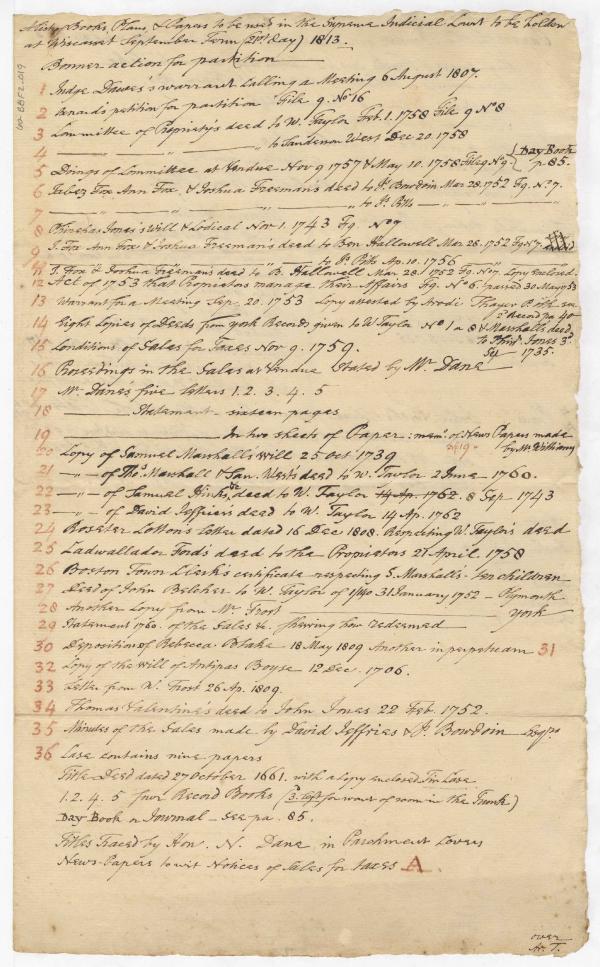 A List of Books, Plans, & Papers to be used in the Supreme Judicial Court to be holden
at Wiscasset September Term (21st day) 1813.
Bonner action for partition
1 Judge Dawes's warrant calling a Meeting 6 August 1807.
2 petition for partition File 9 No 16
3 Committee of Propriety's deed to W. Taylor Feb. 1. 1758 File 9 No 8
4 — — — to Sanderson West Dec 20. 1758
5 Doings of Committee at Vendue Nov 9 1757 & May 10. 1758 File 9 No 9. { Day Book p. 85.
6 Jabez Fox Ann Fox & Joshua Freeman's deed to Js. Bowdoin Mar 28. 1752 Fg. No 7.
7 — " — " — " — to Js. Pitts — " — " — " —
8 Phinehas Jones's Will & Codical Nov 1. 1743 Fg. No 7
9 J. Fox Ann Fox & Joshua Freeman's deed to Ben Hallowell Mar 28. 1752 Fg No 7
— " — " — to Js. Pitts Ap. 10. 1756 —
11 J. Fox & Joshua Freeman's deed to B. Hallowell Mar 28. 1752 Fg No 7. Copy Enclosed.
12 Act of 1753 that Propietors manage their Affairs Fg. No 6. passed 30 May 1753
13 Warrant for a Meeting Sep. 20. 1753 Copy attested by Thayer
2d Record pa 40
14 Eight Copies of Deeds from York Records given to W Taylor No 1 a 8 & Marshalls deed
to Phins. Jones 3d
15 Conditions of Sales for Taxes Nov 9. 1759. Sep 1735.
16 Proceedings in the Sales at Vendue Stated by Mr. Dane
17 Mr. Dane's five letters 1. 2. 3. 4. 5
18 — Statement — sixteen pages
19 — In two sheets of Paper: mem. of News Papers made
by Mr. Williams
20 Copy of Samuel Marshall's Will 25 Oct 1739
21 — " — of Thos. Marshall & San. West's deed to W. Taylor 2 June 1760.
22 — " — of Samuel Hinks's deed to W. Taylor 14 Ap. 1762. 8 Sep 1743
23 — " — of David Jeffries's deed to W. Taylor 14 Ap. 1762
24 Rosseter Cotton's letter dated 16 Dec 1808. Respecting W. Taylor's deed
25 Cadwallador Ford's deed to the Propietors 21 April. 1758
26 Boston Town Clerk's certificate respecting S. Marshall's ten children
27 Deed of John Belcher to W. Taylor of 1/40 31 January 1752 — Plymouth
28 Another Copy from Mr. Frost — York
29 Statement 1760. of the Sales &c. shewing how redeemed
30 Deposition of Rebecca Blake 18 May 1809 Another in perpetuam 31
32 Copy of the Will of Antipas Boyse 12 Dec. 1706.
33 Letter from W. Frost 26 Ap. 1809.
34 Thomas Valentine's deed to John Jones 22 Feb. 1752.
35 Minutes of the Sales made by David Jeffries & J. Bowdoin Esqrs
36 Case contains nine papers
Title Deed dated 27 October 1661. with a Copy enclosed Tin Case
1. 2. 4. 5 four Record Books (3. left for want of room in the Trunk)
Day Book or Journal — See pa. 85.
Titles Traced by Hon. N. Dane in Parchment Covers
News-Papers to wit Notices of Sales for taxes A.
over
Ar. T.